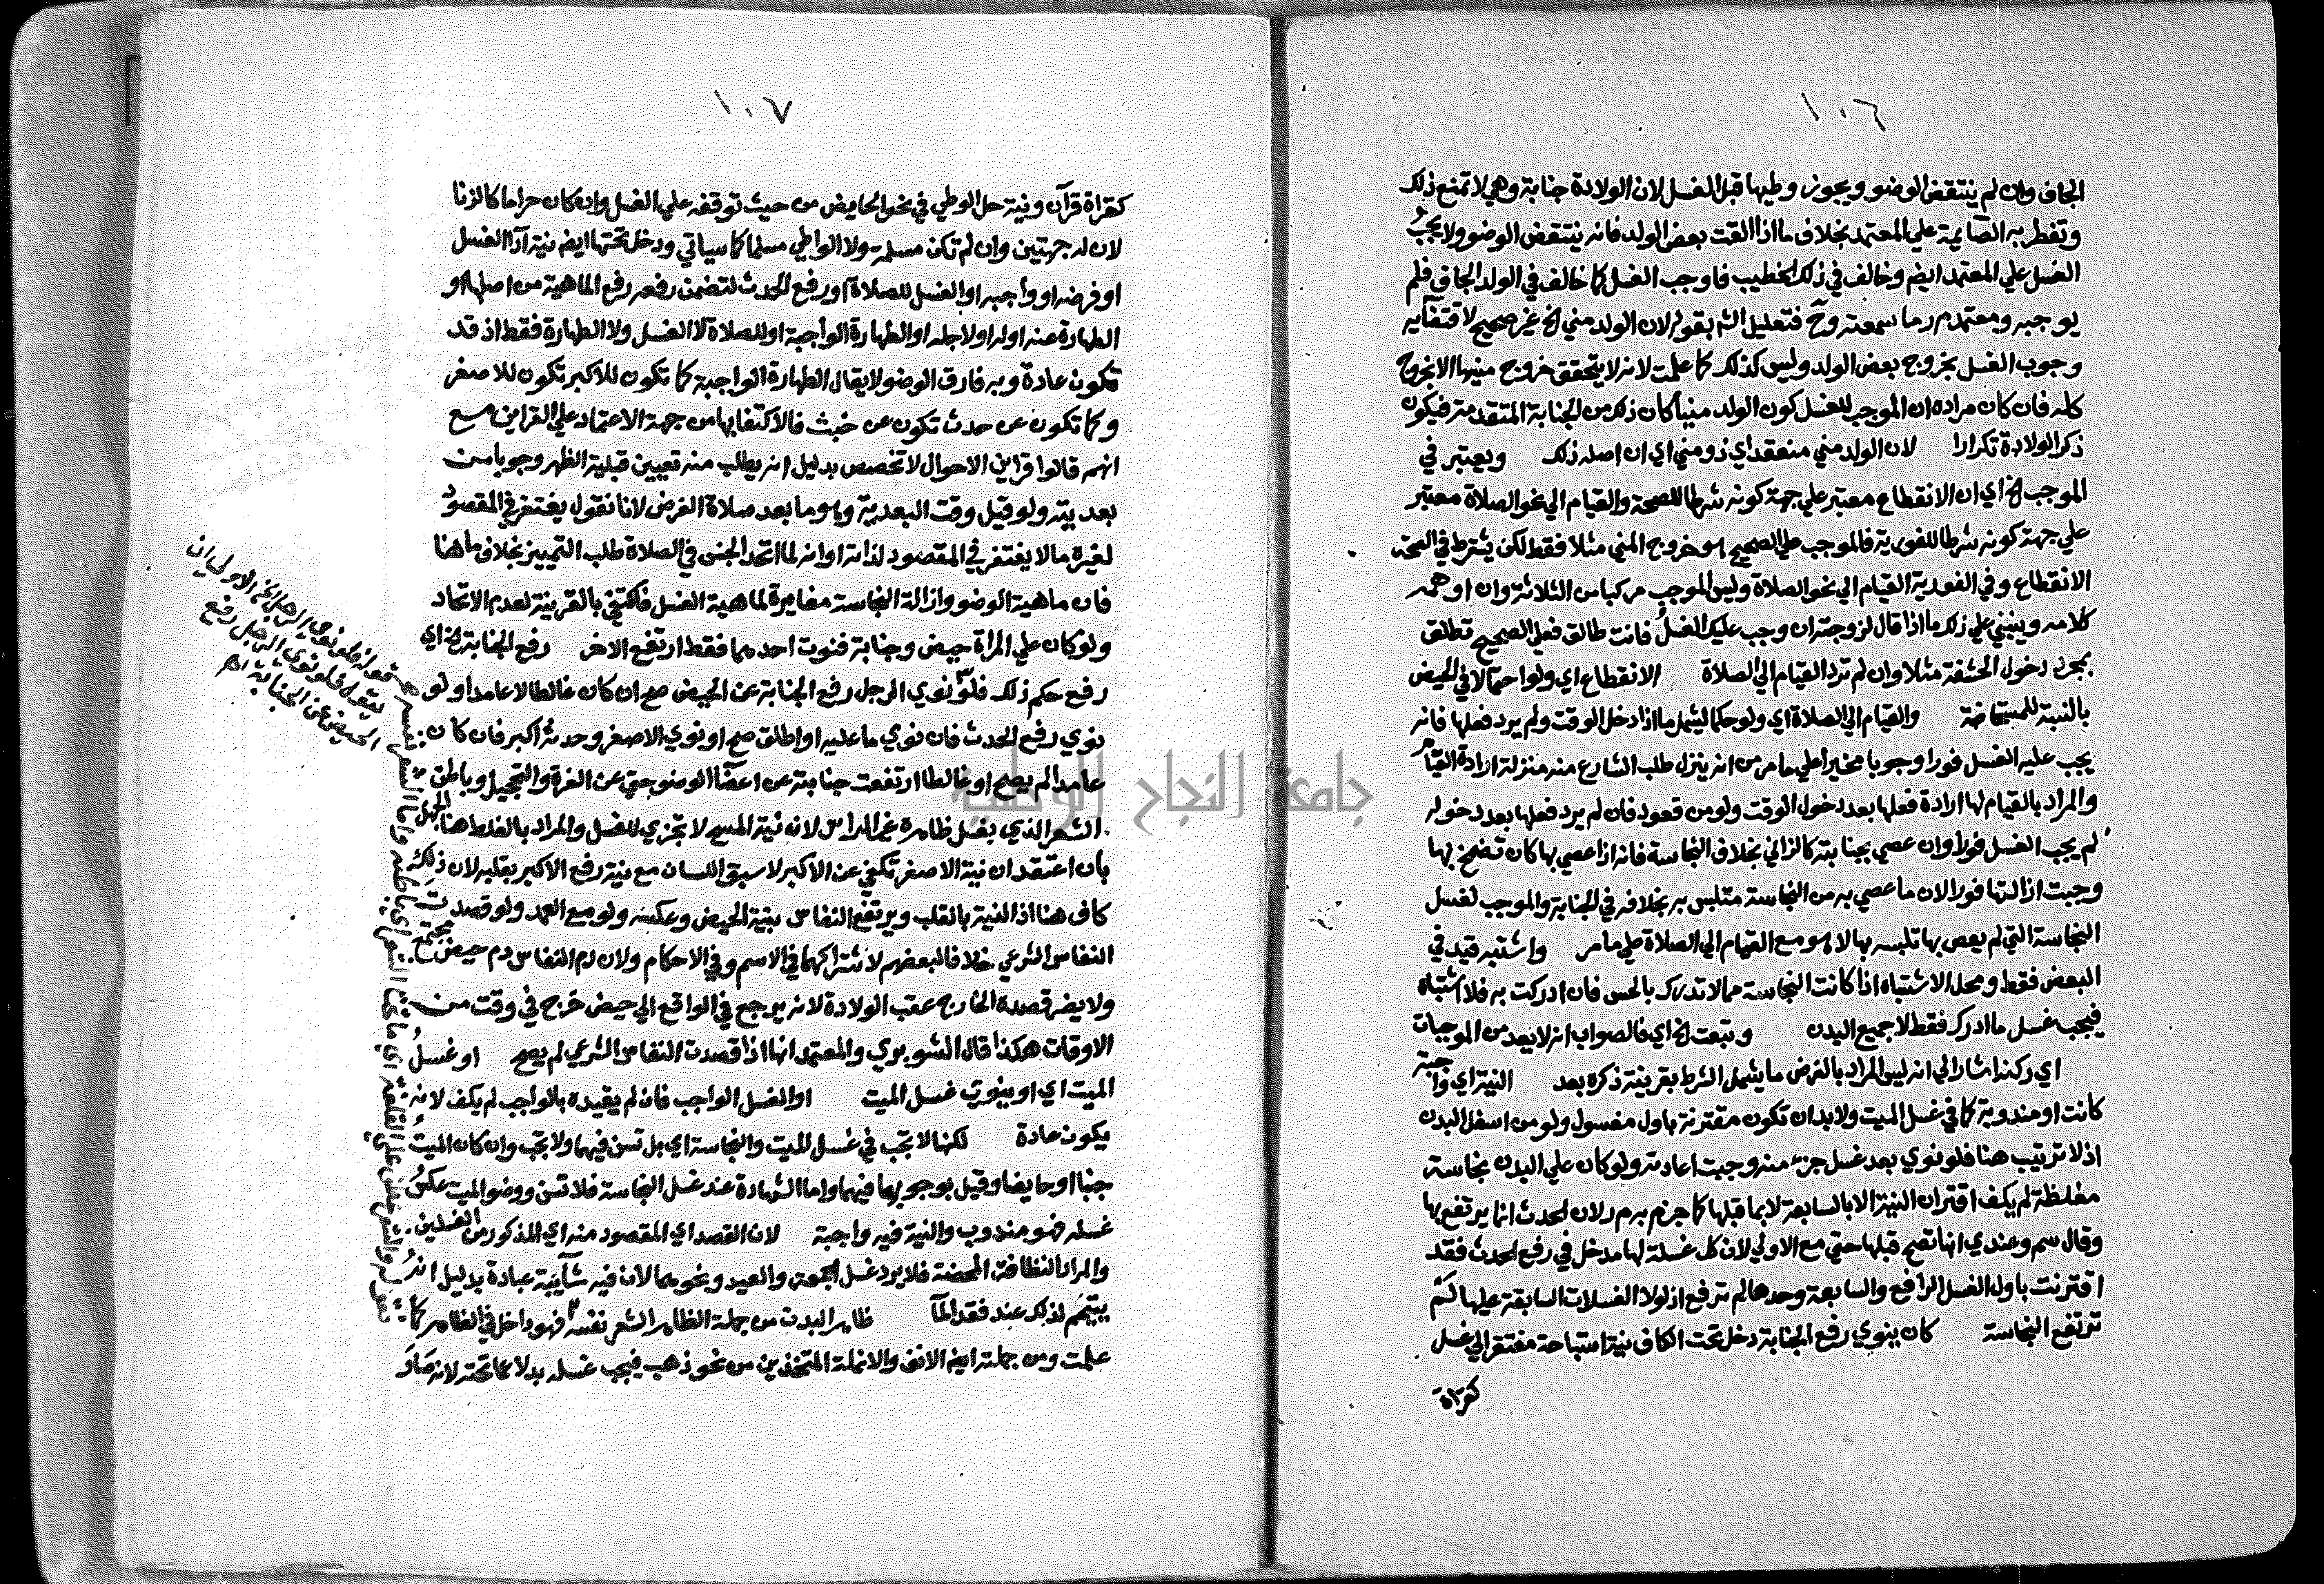 ١٠٦
الجاف وان لم ينتقض الوضو ويجوز وطيها قبل الغسل لان الولادة جنابة وهي لا تمنع ذلك
وتفطر به الصايمة علي المعتمد بخلاف ما اذا القت بعض الولد فانه ينتقض الوضو ولا يجب
الغسل علي المعتمد ايضم وخالف في ذلك الخطيب فاوجب الغسل كما خالف في الولد الجاف فلم
يوجبه ومعتمد م ر ما سمعته وح فتعليل الشم بقوله لان الولد مني الخ غير صحيح لاقتضايه
وجوب الغسل بخروج بعض الولد وليس كذلك كما علمت لانه لا يتحقق خروج منيها الا بخروج
كله فان كان مراده ان الموجب للغسل كون الولد منيا كان ذلك من الجنابة المتقدمة فيكون
ذكر الولادة تكرارا لان الولد مني منعقد اي ذو مني اي ان اصله ذلك ويعتبر في
الموجب الخ اي ان الانقطاع معتبر علي جهة كونه شرطا للصحة والقيام الي نحو الصلاة معتبر
علي جهة كونه شرطا للفورية فالموجب علي الصحيح هو خروج المني مثلا فقط لكن يشترط في الصحة
الانقطاع وفي الفورية القيام الي نحو الصلاة وليس الموجب مركبا من الثلاثة وان اوهمه
كلامه وينبني علي ذلك ما اذا قال لزوجته ان وجب عليك الغسل فانت طالق فعلي الصحيح تطلق
بمجرد دخول الحشفة مثلا وان لم ترد القيام الي الصلاة الانقطاع اي ولو احتمالا في الحيض
بالنسبة للمستحاضة والقيام الي الصلاة اي ولو حكما ليشمل ما اذا دخل الوقت ولم يرد فعلها فانه
يجب عليه الغسل فورا وجوبا مخيرا علي ما مر من انه ينزل طلب الشارع منه منزلة ارادة القيام
والمراد بالقيام لها ارادة فعلها بعد دخول الوقت ولو من قعود فان لم يرد فعلها بعد دخوله
لم يجب الغسل فورا وان عصي بجنابته كالزاني بخلاف النجاسة فانه اذا عصي بها كان تضمخ بها
وجبت ازالتها فورا لان ما عصي به من النجاسة متلبس به بخلافه في الجنابة والموجب لغسل
النجاسة التي لم يعص بها تلبسه بها لا هو مع القيام الي الصلاة علي ما مر واشتبه قيد في
البعض فقط ومحل الاشتباه اذا كانت النجاسة مما لا تدرك بالحس فان ادركت به فلا اشتباه
فيجب غسل ما ادرك فقط لا جميع البدن وتبعت الخ اي فالصواب انه لا يعد من الموجبات
اي ركنه اشار الي انه ليس المراد بالفرض ما يشمل الشرط بقرينة ذكره بعد النية اي واجبة
كانت او مندوبة كما في غسل الميت ولا بد ان تكون مقترنة باول مغسول ولو من اسفل البدن
اذ لا ترتيب هنا فلو نوي بعد غسل جزء منه وجبت اعادته ولو كان علي البدن نجاسة
مغلظة لم يكف اقتران النية الا بالسابعة لا بما قبلها كما جزم به م ر لان الحدث انما يرتفع بها
وقال سم وعندي انها تصح قبلها حتي مع الاولي لان كل غسلة لها مدخل في رفع الحدث فقد
اقترنت باول الغسل الرافع والسابعة وحدها لم ترفع اذ لولا الغسلات السابقة عليها لم
ترتفع النجاسة كان ينوي رفع الجنابة دخل تحت الكاف نية استباحة مفتقر الي غسل
كقراة
١٠٧
كقراة قرآن ونية حل الوطي في نحو الحايض من حيث توقفه علي الغسل وان كان حراما كالزنا
لان له جهتين وان لم تكن مسلمة ولا الواطي مسلما كما سياتي ودخل تحتها ايضم نية ادا الغسل
او فرضه او واجبه او الغسل للصلاة او رفع الحدث لتضمن رفعه رفع الماهية من اصلها او
الطهارة عنه او له او لاجله او الطهارة الواجبة او للصلاة لا الغسل ولا الطهارة فقط اذ قد
تكون عادة وبه فارق الوضو لا يقال الطهارة الواجبة كما تكون للاكبر تكون للاصغر
وكما تكون عن حدث تكون عن خبث فالاكتفا بها من جهة الاعتماد علي القراين مع
انهم قالوا قراين الاحوال لا تخصص بدليل انه يطلب منه تعيين قبلية الظهر وجوبا من
بعديته ولو قيل وقت البعدية وهو ما بعد صلاة الفرض لانا نقول يغتفر في المقصود
لغيره ما لا يغتفر في المقصود لذاته او انه لما اتحد الجنس في الصلاة طلب التمييز بخلاف ما هنا
فان ماهية الوضو وازالة النجاسة مغايرة لماهية الغسل فاكتفي بالقرينة لعدم الاتحاد
ولو كان علي المراة حيض وجنابة فنوت احدهما فقط ارتفع الاخر رفع الجنابة الخ اي
رفع حكم ذلك فلو نوي الرجل رفع الجنابة عن الحيض صح ان كان غالطا لا عامدا ولو
نوي رفع الحدث فان نوي ما عليه او اطلق صح او نوي الاصغر وحدثه اكبر فان كان
عامدا لم يصح او غالطا ارتفعت جنابته عن اعضا الوضو حتي عن الغرة والتحجيل وباطن
الشعر الذي يغسل ظاهره غير الراس لانه نية المسح لا تجزي للغسل والمراد بالغلط هنا الجهل
بان اعتقد ان نية الاصغر تكفي عن الاكبر لا سبق اللسان مع نية رفع الاكبر بقلبه لان ذلك
كاف هنا اذ النية بالقلب ويرتفع النفاس بنية الحيض وعكسه ولو مع العمد ولو قصدت
النفاس الشرعي خلافا لبعضهم لاشتراكهما في الاسم وفي الاحكام ولان دم النفاس دم حيض مجتمع
ولا يضر قصده الخارج عقب الولادة لانه يرجع في الواقع الي حيض خرج في وقت من
الاوقات هكذا قال الشوبري والمعتمد انها اذا قصدت النفاس الشرعي لم يصح او غسل
الميت اي او ينوي غسل الميت او الغسل الواجب فان لم يقيده بالواجب لم يكف لانه
يكون عادة لكنها لا تجب في غسل الميت والنجاسة اي بل تسن فيهما ولا تجب وان كان الميت
جنبا او حايضا وقيل بوجوبها فيهما واما الشهادة عند غسل النجاسة فلا تسن ووضو الميت عكس
غسله فهو مندوب والنية فيه واجبة لان القصد اي المقصود منه اي المذكور من الغسلين
والمراد النظافة المحضة فلا يرد غسل الجمعة والعيد ونحوهما لان فيه شايبة عبادة بدليل انه
ييتمم لذلك عند فقد الما ظاهر البدن من جملة الظاهر الشعر نفسه فهو داخل في الظاهر كما
علمت ومن جملته ايضم الانف والانملة المتخذين من نحو ذهب فيجب غسله بدلا عما تحته لانه صار
قوله فلو نوي الرجل
يقوله فلو نوي الرجل رفع
الحيض عن الجنابة اهـ
جامعة النجاح الوطنية